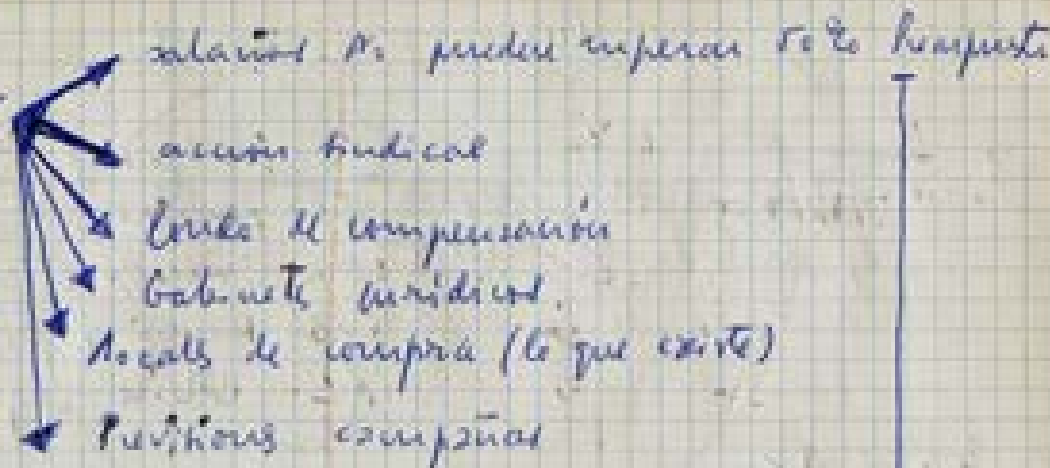 salarios No pueden superar 50% Presupuesto
acción sindical
fondo de compensación
Gabinete jurídicos.
de compra (lo que existe)
Previsions campañas